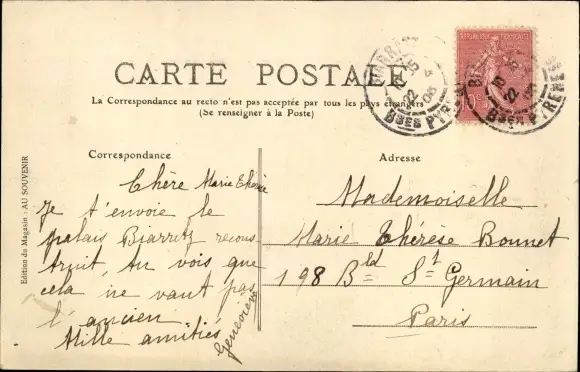 CARTE POSTALE
La Correspondance au recto n'est pas acceptée par tous les pays étrangers
(Se renseigner à la Poste)
Correspondance
Adresse
Edition du Magasin : AU SOUVENIR
Chère Marie Thérèse
Je t'envoie le
palais Biarritz recons-
truit, tu vois que
cela ne vaut pas
l'ancien
Mille amitiés
Geneviève
Mademoiselle
Marie Thérèse Bonnet
198 Bld St Germain
Paris
REPUBLIQUE FRANÇAISE
BIARRITZ
22
Bses PYRENEES
22
Bses PYRENEES